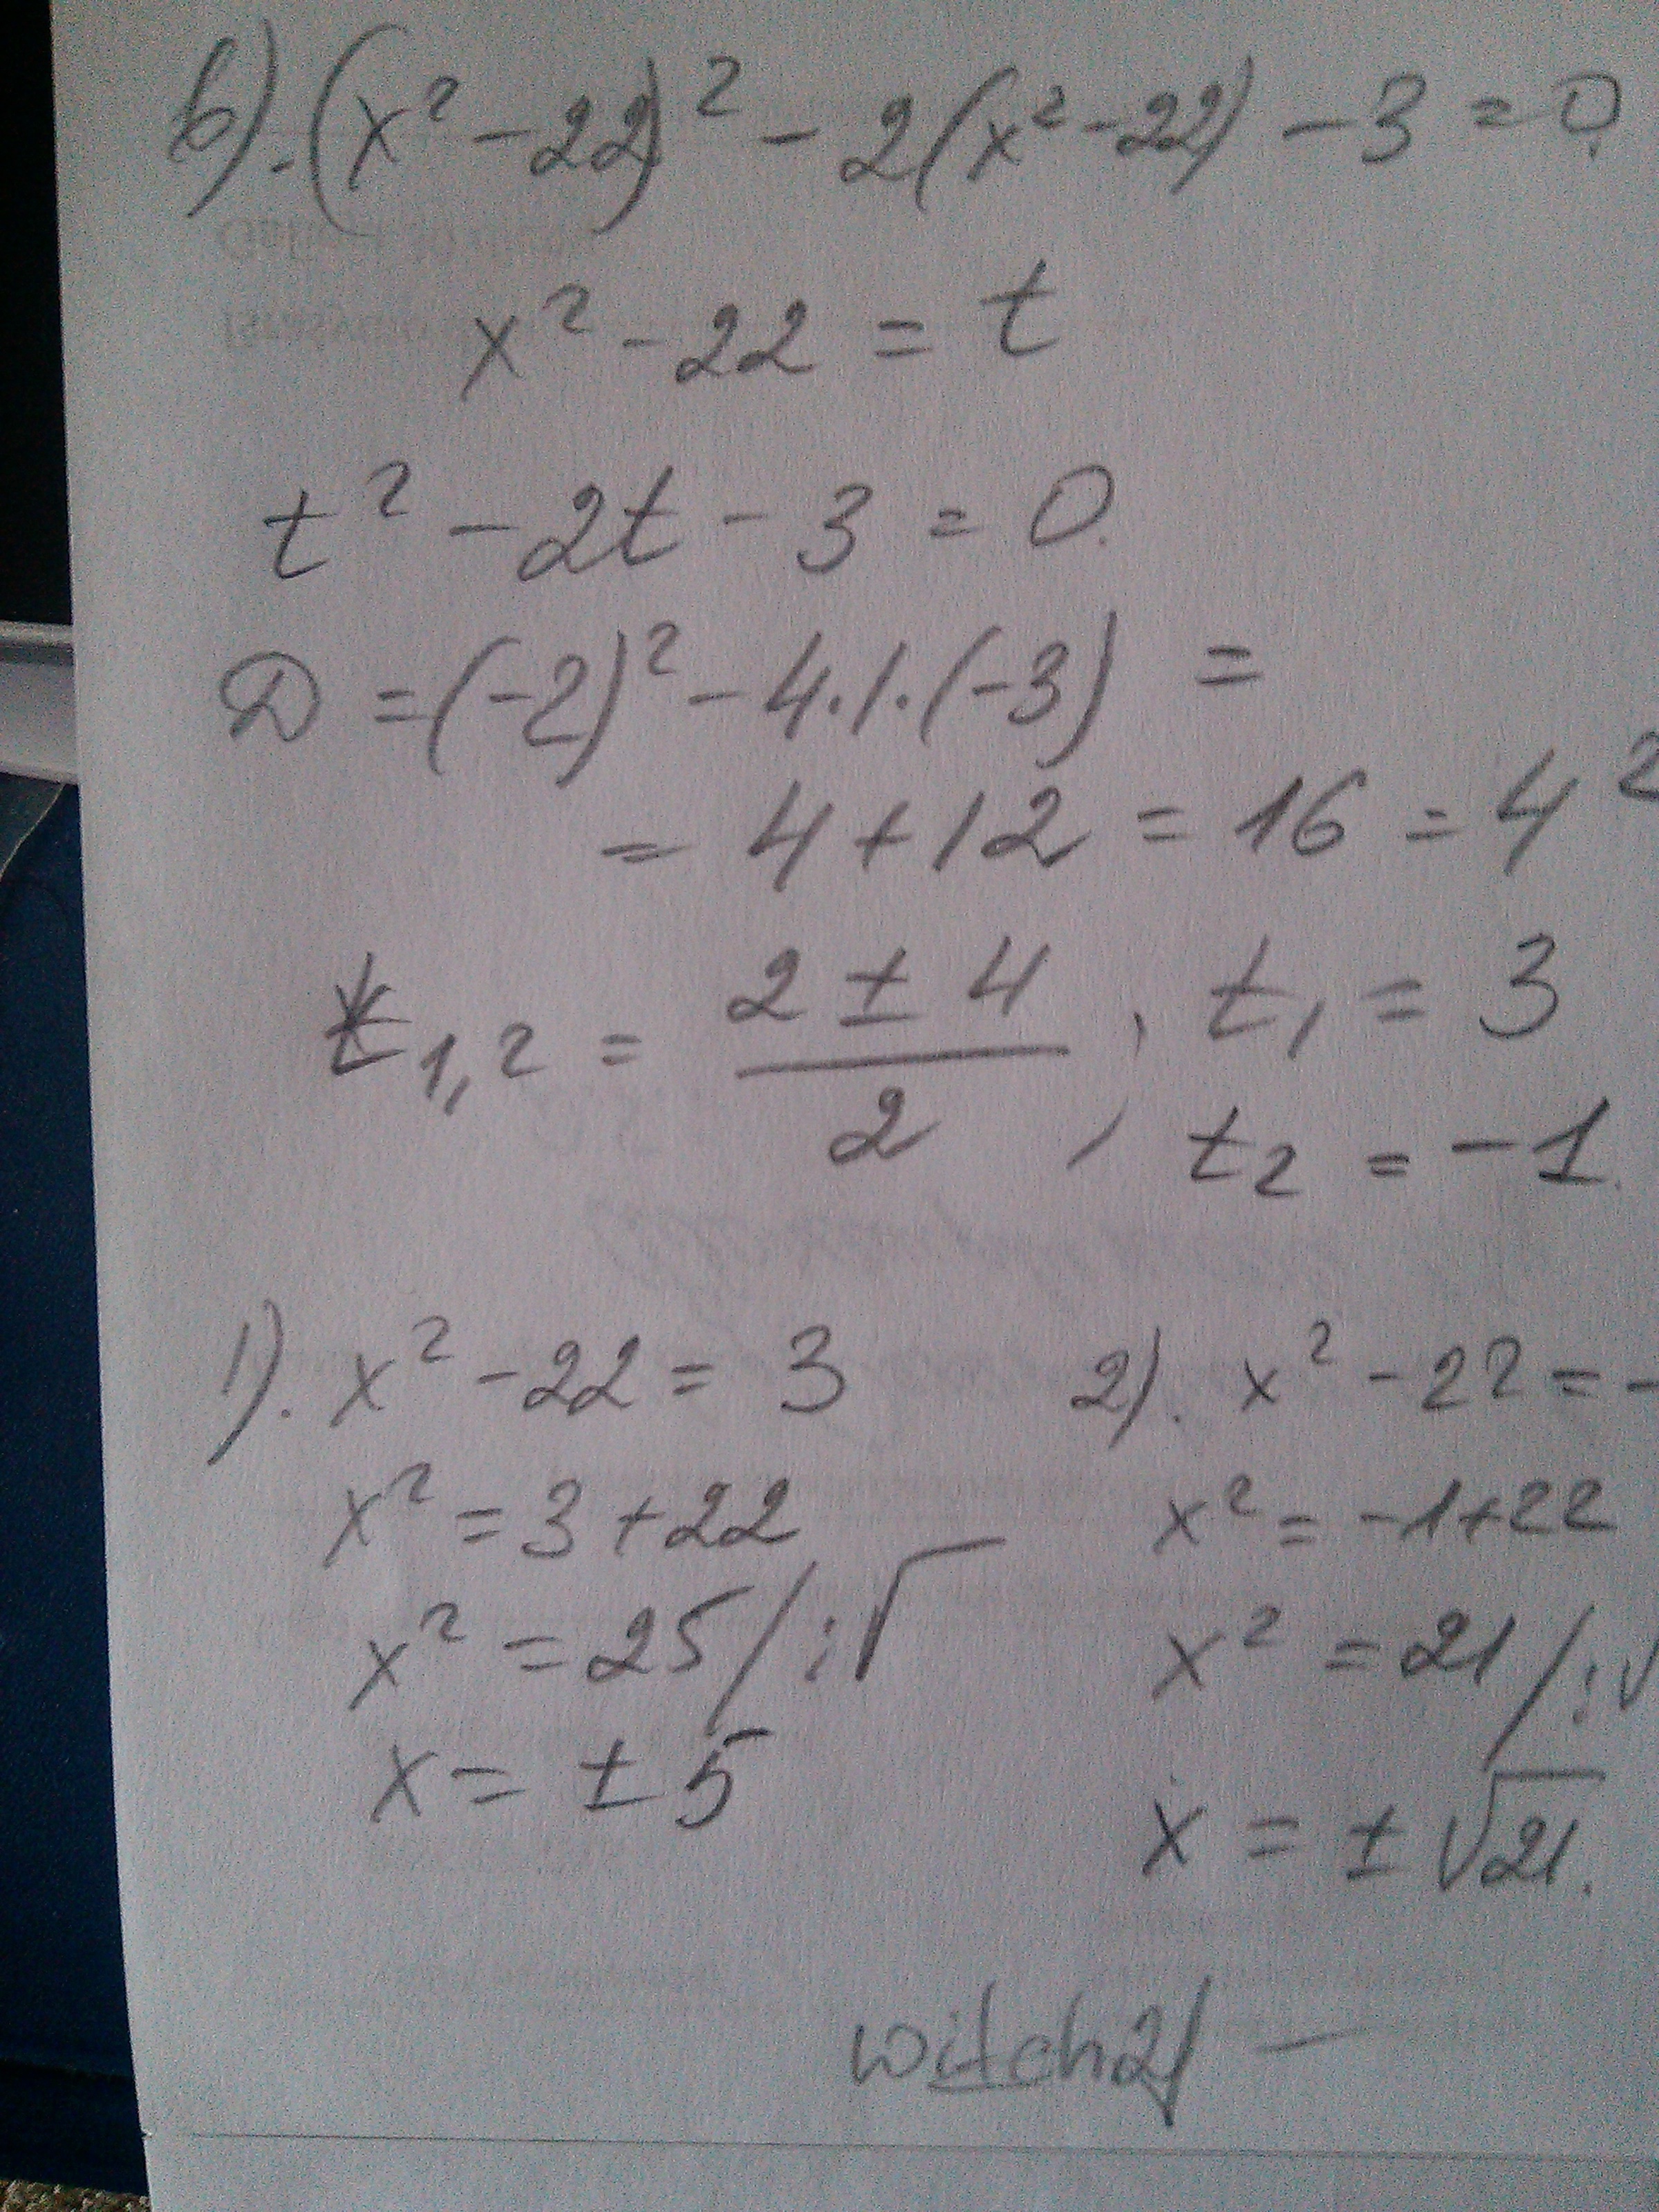 б). (x² - 22)² - 2(x² - 22) - 3 = 0.
x² - 22 = t
t² - 2t - 3 = 0.
D = (-2)² - 4.1.(-3) =
= 4 + 12 = 16 = 4²
t1,2 = (2 ± 4)/2, t1 = 3
, t2 = -1.
1). x² - 22 = 3
x² = 3 + 22
x² = 25 / :√
x = ± 5
2). x² - 22 = -
x² = -1 + 22
x² = 21 / :√
x = ± √21.
witch21 —